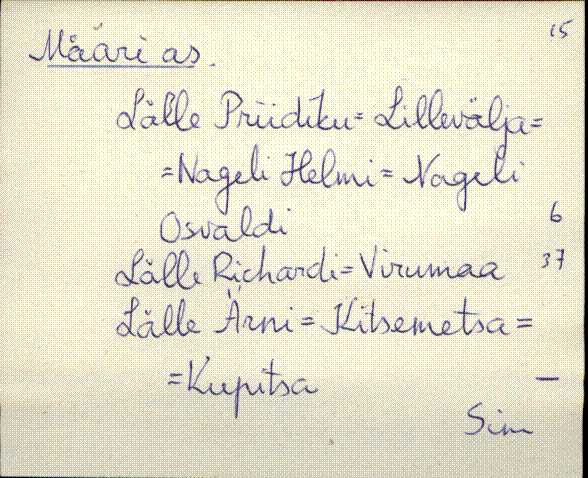 15
Määri as.
Lälle Priidiku = Lillevälja =
= Nageli Helmi = Nageli
Osvaldi 6
Lälle Richardi = Virumaa 37
Lälle Ärni = Kitsemetsa =
= Kupitsa —
Sim